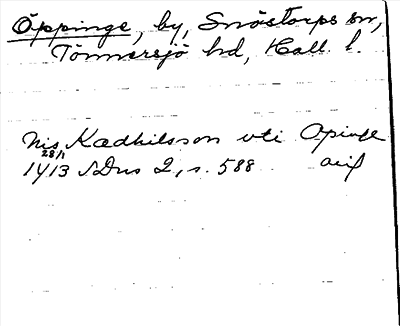 Öppinge, by, Snöstorps sn,
Tönnersjö hd, Hall. l.
Nis Kædhilsson uti Opinge
28/1
1413 SDns 2, s. 588 avs